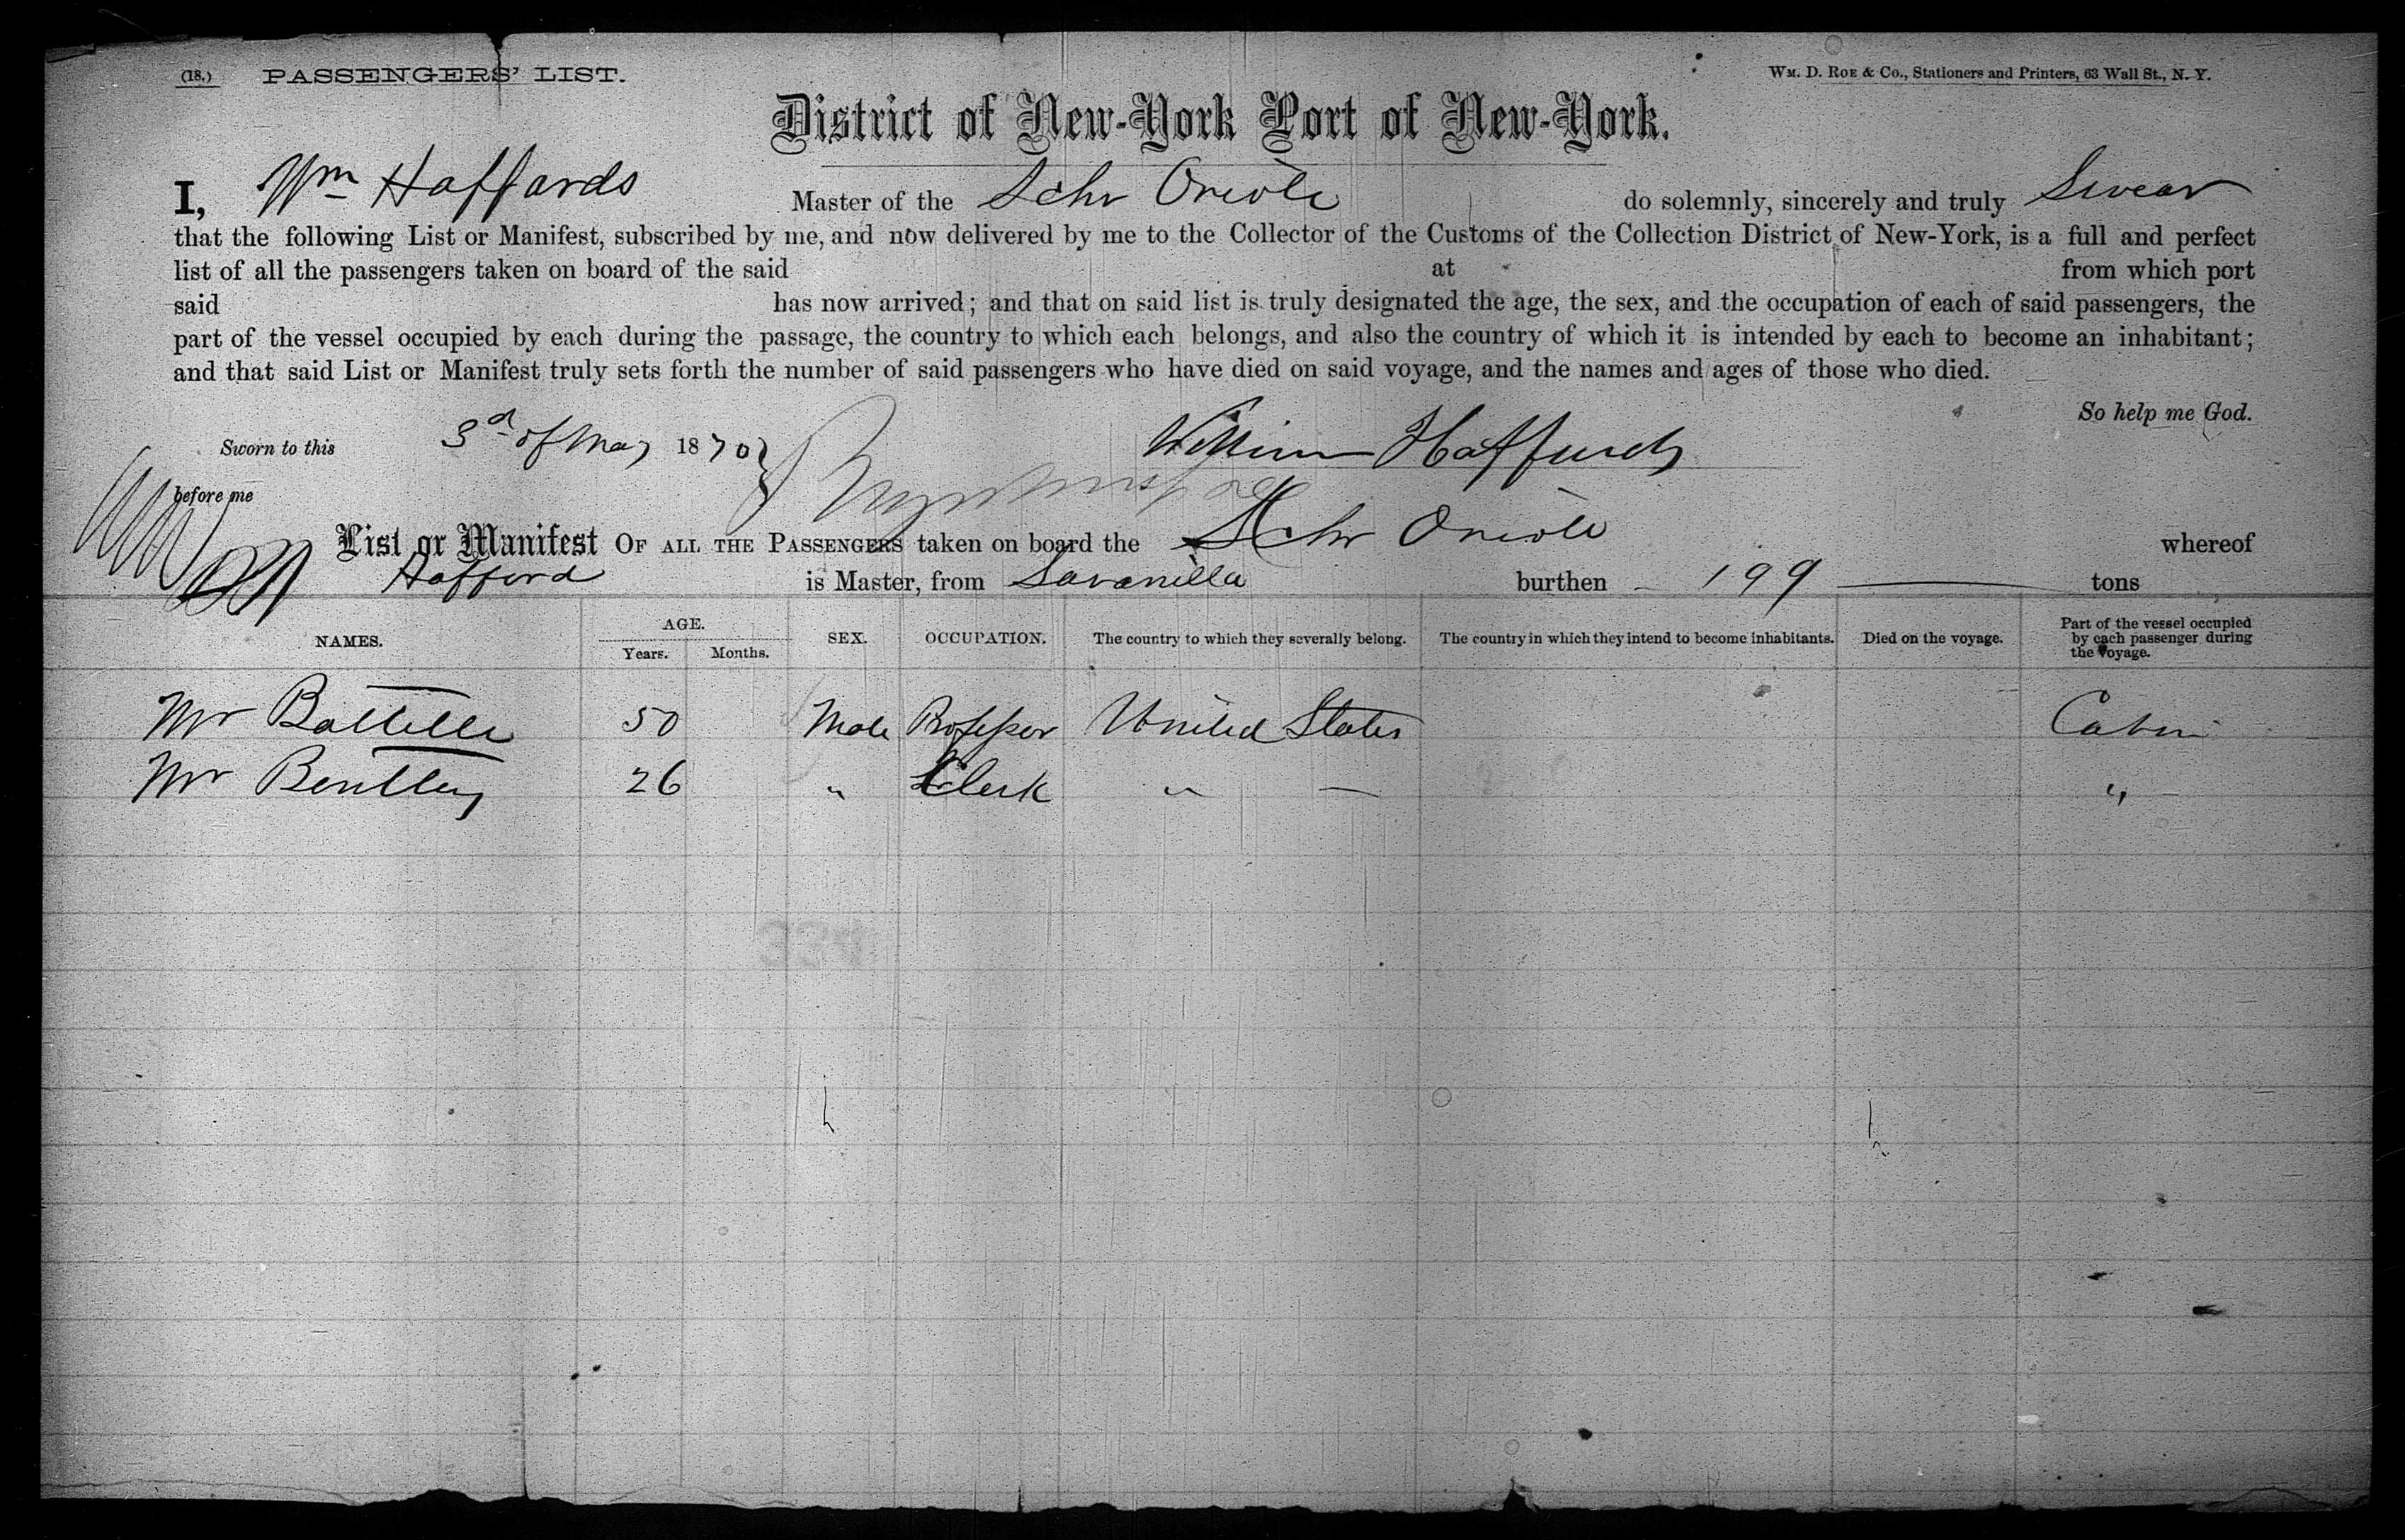 (18.) PASSENGERS' LIST. WM. D. ROE & CO., Stationers and Printers, 63 Wall St., N. Y.
District of New-York Port of New-York.
I, Wm Haffards Master of the Schr Oriole do solemnly, sincerely and truly Swear
that the following List or Manifest, subscribed by me, and now delivered by me to the Collector of the Customs of the Collection District of New-York, is a full and perfect
list of all the passengers taken on board of the said at from which port
said has now arrived; and that on said list is truly designated the age, the sex, and the occupation of each of said passengers, the
part of the vessel occupied by each during the passage, the country to which each belongs, and also the country of which it is intended by each to become an inhabitant;
and that said List or Manifest truly sets forth the number of said passengers who have died on said voyage, and the names and ages of those who died.
So help me God.
Sworn to this 3d of May 1870 William Haffards
before me
List or Manifest OF ALL THE PASSENGERS taken on board the Schr Oriole whereof
Hafford is Master, from Savanilla burthen 199 tons
NAMES. AGE. Years. Months. SEX. OCCUPATION. The country to which they severally belong. The country in which they intend to become inhabitants. Died on the voyage. Part of the vessel occupied by each passenger during the voyage.
Mr Battelle 50 Male Professor United States Cabin
Mr Bentley 26 " Clerk " — "